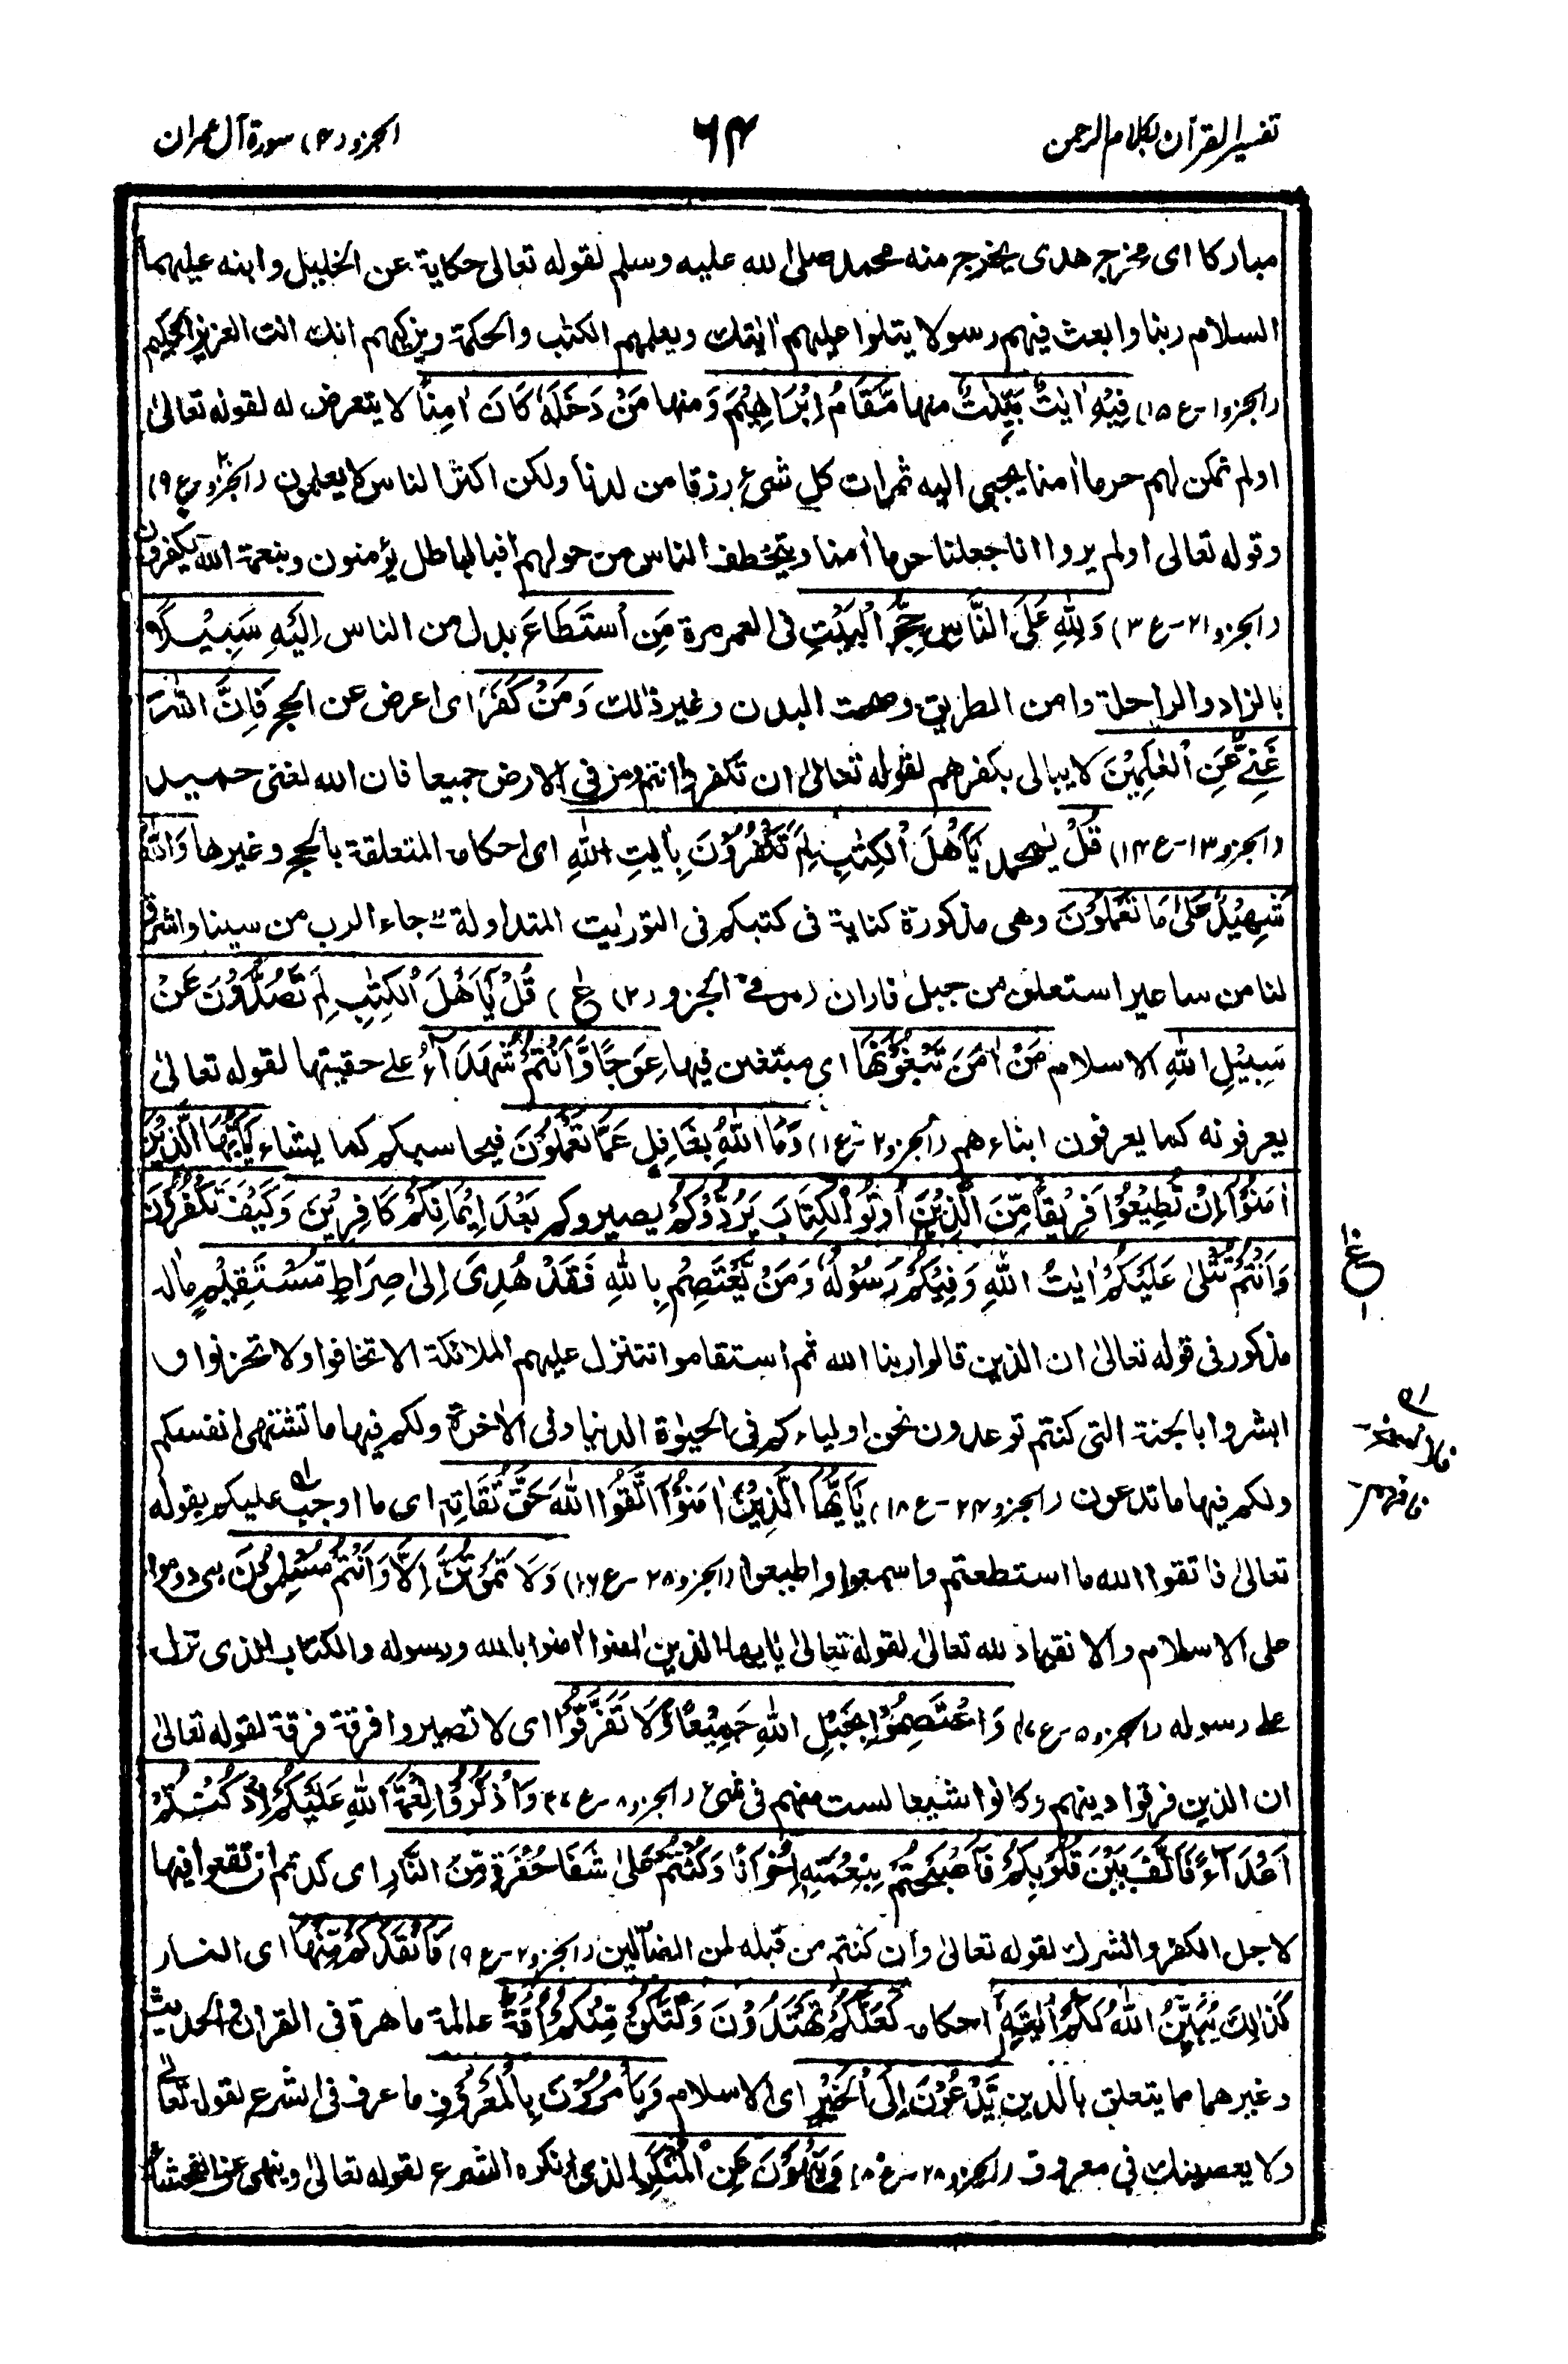 تفسير القرآن بكلام الرحمن
٦٤
الجزو (٤) سورة آل عمران
مباركا اى مخرج هدى يخرج منه محمد صلى الله عليه وسلم لقوله تعالى حكاية عن الخليل وابنه عليهما
السلام ربنا وابعث فيهم رسولا يتلوا عليهم اٰيٰتك ويعلمهم الكتٰب والحكمة ويزكيهم انك انت العزيز الحكيم
(الجزو ١-ع ١٥) فِيْهِ اٰيٰتٌ بَيِّنٰتٌ منها مَّقَامُ اِبْرَاهِيْمَ وَ منها مَنْ دَخَلَهٗ كَانَ اٰمِنًا لا يتعرض له لقوله تعالىٰ
اولم نمكن لهم حرما اٰمنا يجبى اليه ثمرات كل شىء رزقا من لدنا ولكن اكثر الناس لا يعلمون (الجزو ٢٠-ع ٩)
وقوله تعالى اولم يروا انا جعلنا حرما اٰمنا ويتخطف الناس من حولهم افبالباطل يؤمنون وبنعمة الله يكفرون
(الجزو ٢١-ع ٣) وَلِلّٰهِ عَلَى النَّاسِ حِجُّ الْبَيْتِ فى العمر مرة مَنِ اسْتَطَاعَ بدل من الناس اِلَيْهِ سَبِيْلًا
بالزاد والراحلة وامن الطريق وصحت البدن وغير ذٰلك وَمَنْ كَفَرَ اى اعرض عن الحج فَاِنَّ اللّٰهَ
غَنِىٌّ عَنِ الْعٰلَمِيْنَ لا يبالى بكفرهم لقوله تعالىٰ ان تكفروا انتم ومن فى الارض جميعا فان الله لغنى حميد
(الجزو ١٣-ع ١٤) قُلْ يٰمحمد يَاَهْلَ الْكِتٰبِ لِمَ تَكْفُرُوْنَ بِاٰيٰتِ اللّٰهِ اى احكامه المتعلقة بالحج وغيرها وَاللّٰهُ
شَهِيْدٌ عَلىٰ مَا تَعْمَلُوْنَ وهى مذكورة كناية فى كتبكم فى التورٰيت المتداولة جاء الرب من سينا واشرق
لنا من ساعير استعلن من جبل فاران (الجزو (٢) ) قُلْ يَاَهْلَ الْكِتٰبِ لِمَ تَصُدُّوْنَ عَنْ
سَبِيْلِ اللّٰهِ الاسلام مَنْ اٰمَنَ تَبْغُوْنَهَا اى مبتغين فيها عِوَجًا وَّاَنْتُمْ شُهَدَآءُ على حقيتها لقوله تعالىٰ
يعرفونه كما يعرفون ابناءهم (الجزو ٢-ع ١) وَمَا اللّٰهُ بِغَافِلٍ عَمَّا تَعْمَلُوْنَ فيحاسبكم كما يشاء يَاَيُّهَا الَّذِيْنَ
اٰمَنُوْا اِنْ تُطِيْعُوْا فَرِيْقًا مِّنَ الَّذِيْنَ اُوْتُوا الْكِتَابَ يَرُدُّوْكُمْ يصيروكم بَعْدَ اِيْمَانِكُمْ كَافِرِيْنَ وَكَيْفَ تَكْفُرُوْنَ
وَاَنْتُمْ تُتْلىٰ عَلَيْكُمْ اٰيٰتُ اللّٰهِ وَفِيْكُمْ رَسُوْلُهٗ وَمَنْ يَّعْتَصِمْ بِاللّٰهِ فَقَدْ هُدِىَ اِلىٰ صِرَاطٍ مُّسْتَقِيْمٍ ماٰله
مذكور فى قوله تعالىٰ ان الذين قالوا ربنا الله ثم استقاموا تتنزل عليهم الملائكة الا تخافوا ولا تحزنوا و
ابشروا بالجنة التى كنتم توعدون نحن اولياءكم فى الحيوٰة الدنيا وفى الاٰخرة ولكم فيها ما تشتهى انفسكم
ولكم فيها ما تدعون (الجزو ٢٤-ع ١٨) يَاَيُّهَا الَّذِيْنَ اٰمَنُوْا اتَّقُوا اللّٰهَ حَقَّ تُقَاتِهٖ اى ما اوجب عليكم بقوله
تعالىٰ فاتقوا الله ما استطعتم واسمعوا واطيعوا (الجزو ٢٨-ع ١٦) وَلَا تَمُوْتُنَّ اِلَّا وَاَنْتُمْ مُّسْلِمُوْنَ اى دوموا
على الاسلام والانقياد لله تعالىٰ لقوله تعالىٰ يٰايها الذين اٰمنوا اٰمنوا بالله ورسوله والكتاب الذى نزل
على رسوله (الجزو ٥-ع ١٧) وَاعْتَصِمُوْا بِحَبْلِ اللّٰهِ جَمِيْعًا وَّلَا تَفَرَّقُوْا اى لا تصيروا فرقة فرقة لقوله تعالىٰ
ان الذين فرقوا دينهم وكانوا شيعا لست منهم فى شىء (الجزو ٨-ع ٧) وَاذْكُرُوْا نِعْمَةَ اللّٰهِ عَلَيْكُمْ اِذْ كُنْتُمْ
اَعْدَآءً فَاَلَّفَ بَيْنَ قُلُوْبِكُمْ فَاَصْبَحْتُمْ بِنِعْمَتِهٖ اِخْوَانًا وَكُنْتُمْ عَلىٰ شَفَا حُفْرَةٍ مِّنَ النَّارِ اى كدتم ان تقعوا فيها
لاجل الكفر والشرك لقوله تعالىٰ وان كنتم من قبله لمن الضاۤلين (الجزو ٢-ع ٩) فَاَنْقَذَكُمْ مِّنْهَا اى النار
كَذٰلِكَ يُبَيِّنُ اللّٰهُ لَكُمْ اٰيٰتِهٖ احكامه لَعَلَّكُمْ تَهْتَدُوْنَ وَلْتَكُنْ مِّنْكُمْ اُمَّةٌ عالمة ماهرة فى القراٰن والحديث
وغيرهما مما يتعلق بالدين يَّدْعُوْنَ اِلَى الْخَيْرِ اى الاسلام وَيَأْمُرُوْنَ بِالْمَعْرُوْفِ ما عرف فى الشرع لقوله تعالىٰ
ولا يعصينك فى معروف (الجزو ٢٨-ع ٨) وَيَنْهَوْنَ عَنِ الْمُنْكَرِ الذى انكره الشرع لقوله تعالىٰ وينهى عن الفحشاء
ع
١